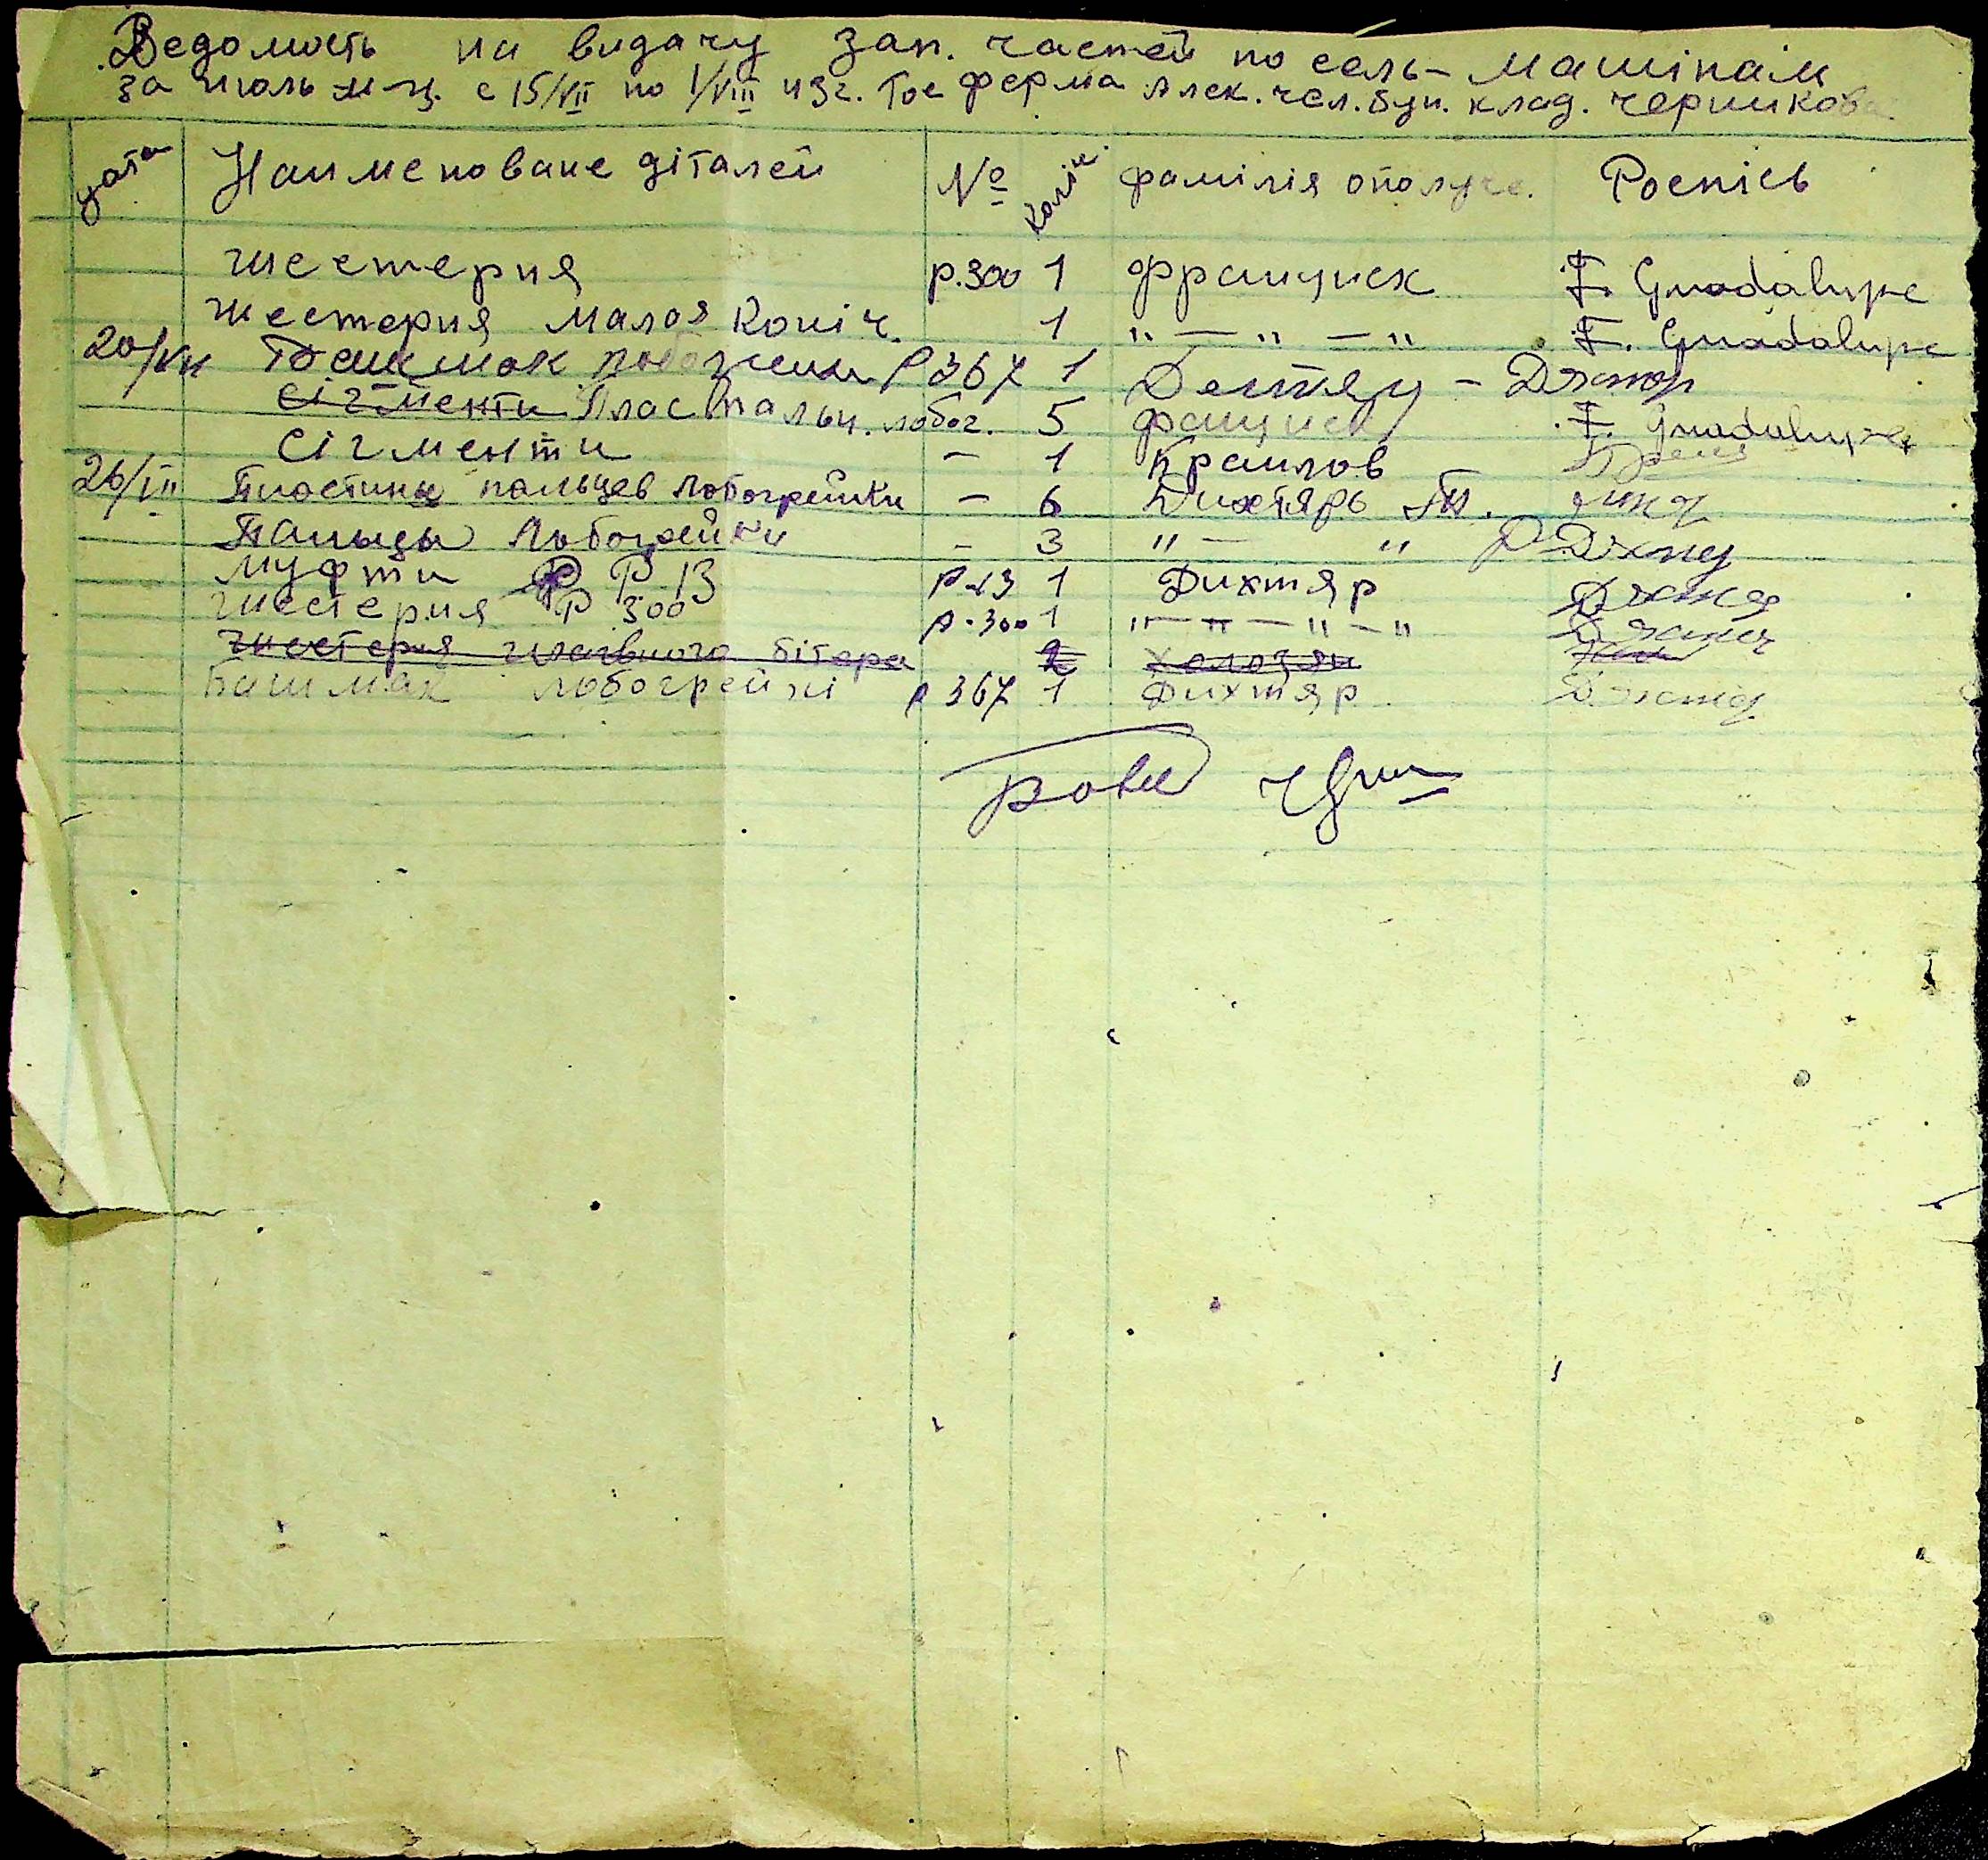 Ведомость на видачу зап. частей по сель-машінам
за июль м-ц. с 15/VII по 1/VIII 43г. Гос ферма Алек. чел. бун. клад. черникова
дата Наименоване діталей № Колич. фамілія ополуче. Роспісь
шестерня р.300 1 Француиск F. Guadalupe
шестерня малоя Коніч. 1 "—"—" F. Guadalupe
20/VII Башмак лобогрейки Р 367 1 Дехтяр -
сігменти Плас пальц. лобог. 5 F. Guadalupe
сігменти — 1 Краилов
26/VII Пластины пальцев лобогрейки — 6 Дихтярь
Пальцы Лобогрейки — 3 "— "
муфти Р Р 13 Р-13 1 Дихтяр
шестерня Р 300 р.300 1 "—"—"—"
шестерня главного бітера 2
Башмак лобогрейкі р 367 1 Дихтяр